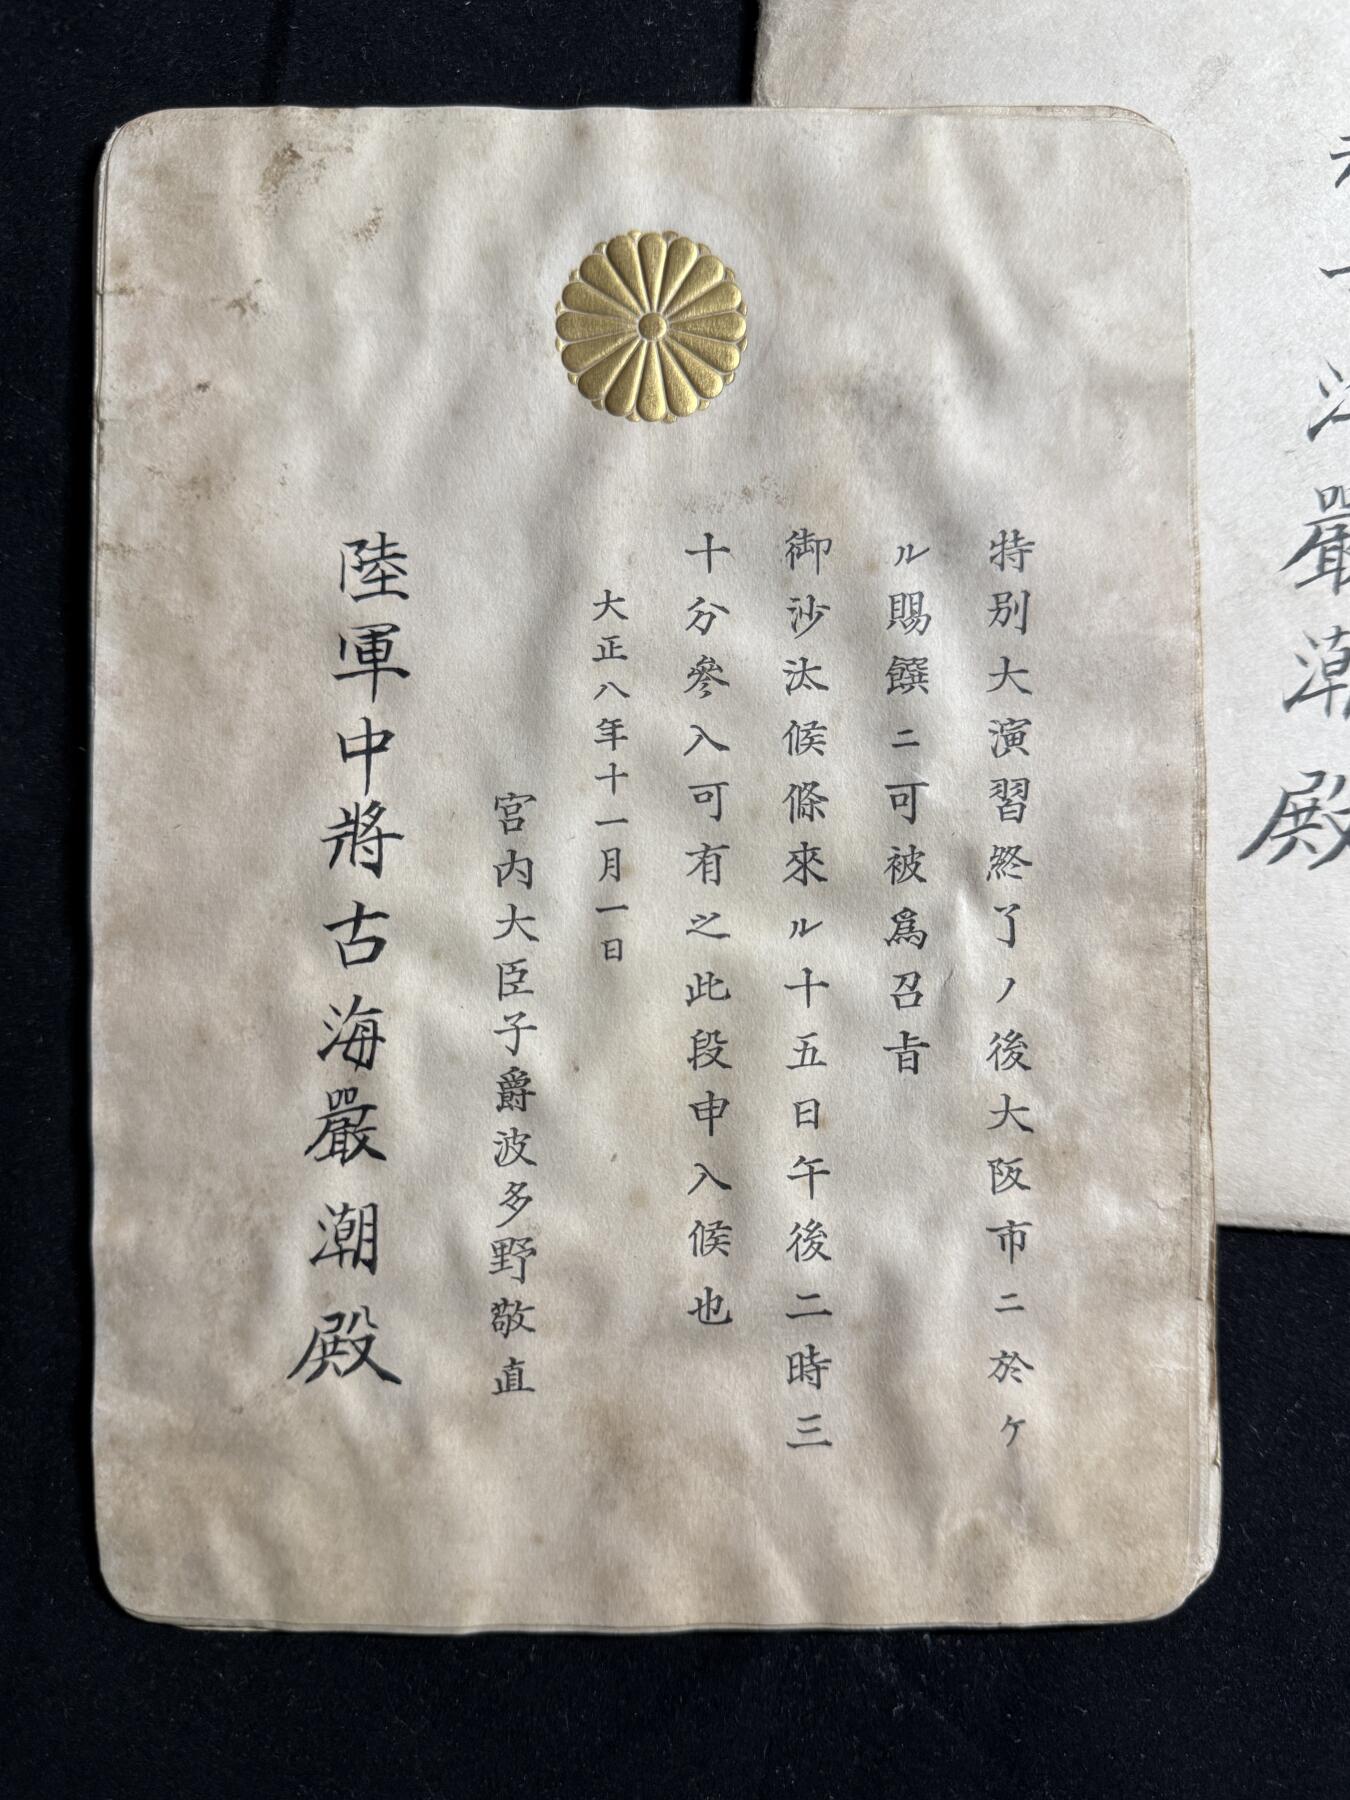 特別大演習終了ノ後大阪市ニ於ケ
ル賜饌ニ可被爲召旨
御沙汰候條來ル十五日午後二時三
十分參入可有之此段申入候也
大正八年十一月一日
宮内大臣子爵波多野敬直
陸軍中將古海嚴潮殿
海嚴潮殿